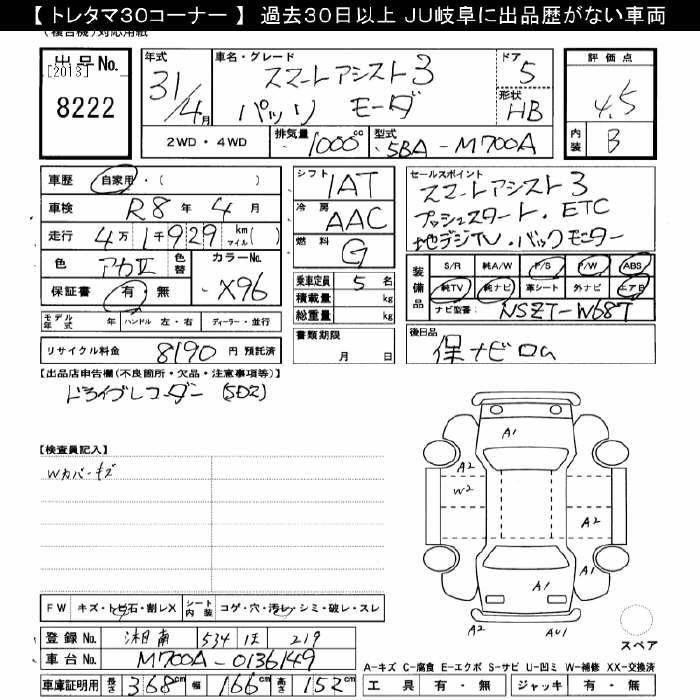 【 トレタマ30コーナー 】 過去30日以上 JU岐阜に出品歴がない車両
(複合機)対応用紙
出品No.
[2013]
8222
年式
31/4月
車名・グレード
スマートアシスト3
パッソ モーダ
ドア
5
形状
HB
評価点
4.5
内装
B
2WD・4WD
排気量
1000cc
型式
5BA-M700A
車歴
自家用・( )
車検
R8年4月
走行
4万1千929 km マイル( )
色
アカⅡ
色替
カラーNo.
X96
保証書
有・無
モデル年式 年
ハンドル 左・右
ディーラー・並行
リサイクル料金 8190 円 預託済
シフト
IAT
冷房
AAC
燃料
G
乗車定員 5 名
積載量 kg
総重量 kg
書類期限
月 日
セールスポイント
スマートアシスト3
プッシュスタート.ETC
地デジTV.バックモニター
装備品
S/R
純A/W
P/S
P/W
ABS
純TV
純ナビ
革シート
外ナビ
エアB
ナビ型番: NSZT-W68T
後日品
保ナビロム
【出品店申告欄(不良箇所・欠品・注意事項等)】
ドライブレコーダー(SD2)
【検査員記入】
Wカバーキズ
FW
キズ・トビ石・割レX
シート内装
コゲ・穴・汚レ・シミ・破レ・スレ
登録No.
湘南 534 ほ 219
車台No.
M700A-0136149
車庫証明用
長さ 368cm
幅 166cm
高さ 152cm
A1
A2
W2
A2
A1
A1
A2
AU1
スペア
A-キズ C-腐食 E-エクボ S-サビ U-凹ミ W-補修 XX-交換済
工具 有・無
ジャッキ 有・無